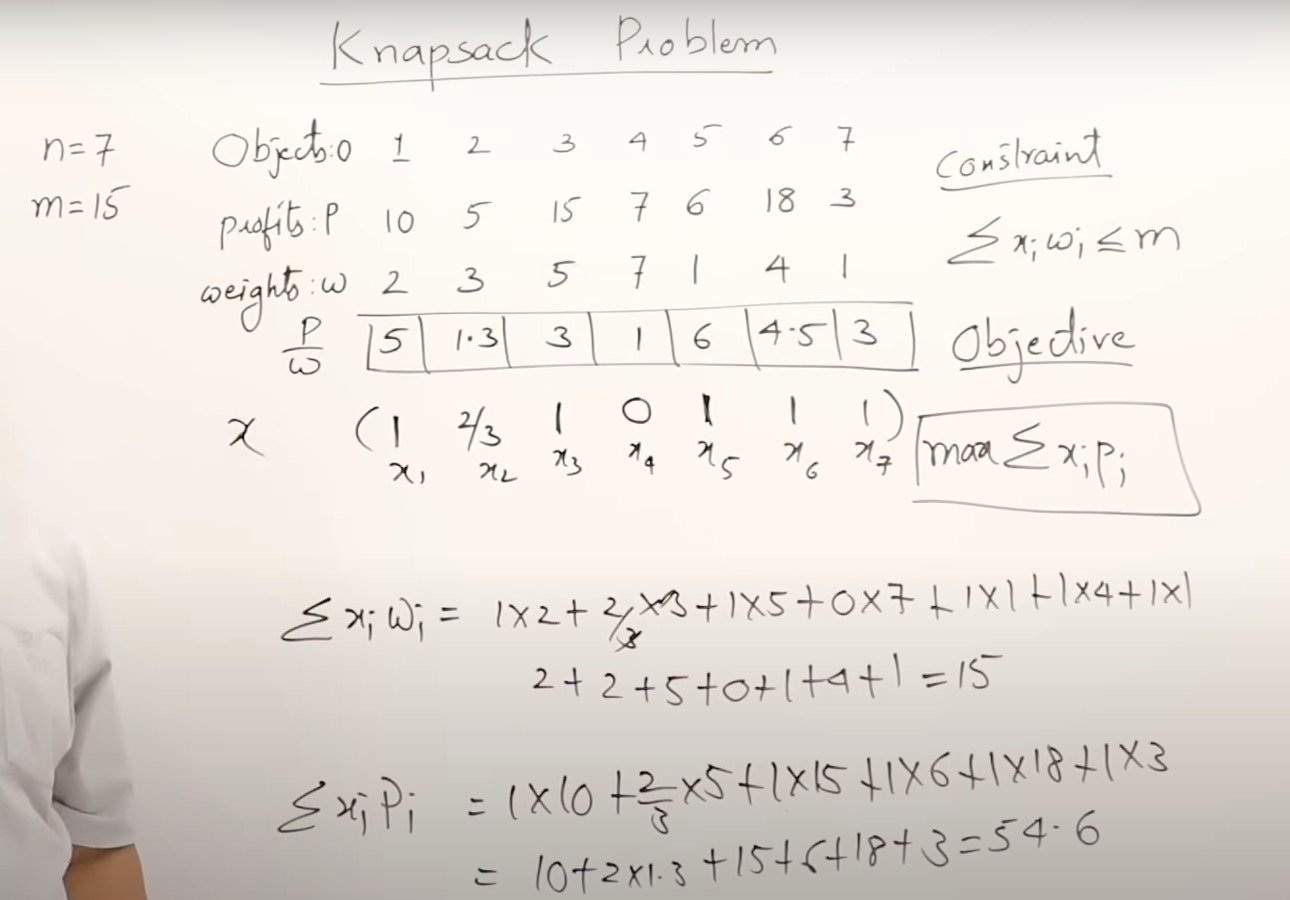 Knapsack Problem
n=7
m=15
Objects:O 1 2 3 4 5 6 7
profits:P 10 5 15 7 6 18 3
weights:w 2 3 5 7 1 4 1
P/w 5 1.3 3 1 6 4.5 3
x (1 2/3 1 0 1 1 1)
x₁ x₂ x₃ x₄ x₅ x₆ x₇
Constraint
∑xᵢwᵢ≤m
Objective
max∑xᵢpᵢ
∑xᵢwᵢ = 1×2+2/3×3+1×5+0×7+1×1+1×4+1×1
2+2+5+0+1+4+1=15
∑xᵢpᵢ = 1×10+2/3×5+1×15+1×6+1×18+1×3
= 10+2×1.3+15+6+18+3=54.6